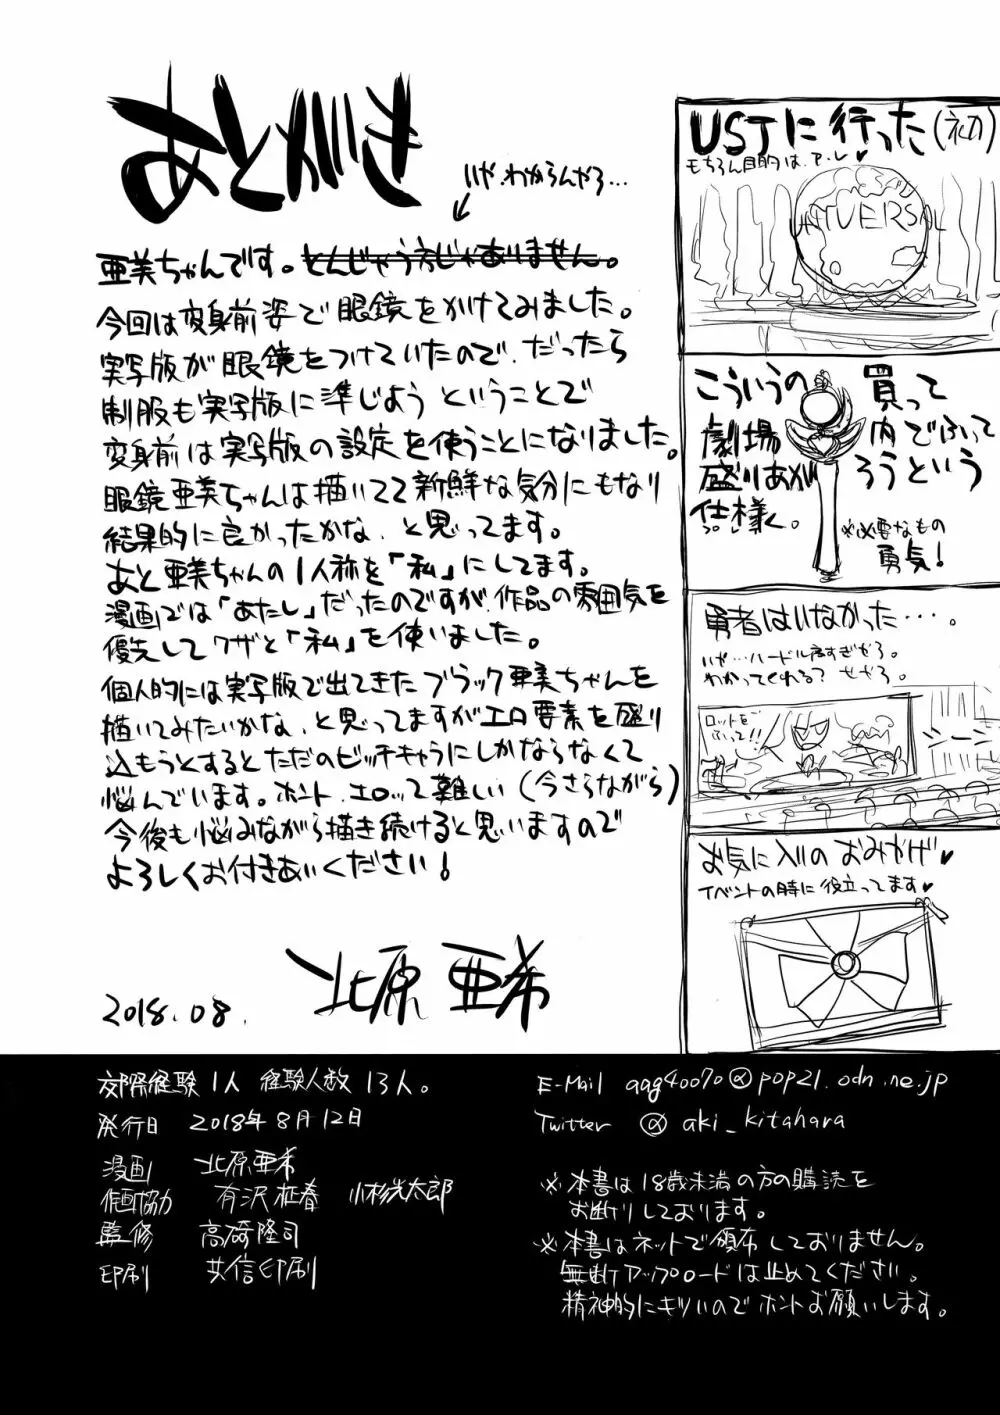 あとがき
いや、わからんやろ…
亜美ちゃんです。とんじゃう方じゃありません。
今回は変身前姿で眼鏡をかけてみました。
実写版が眼鏡をつけていたので、だったら
制服も実写版に準じようということで
変身前は実写版の設定を使うことになりました。
眼鏡亜美ちゃんは描いてて新鮮な気分にもなり
結果的に良かったかな、と思ってます。
あと亜美ちゃんの1人称を「私」にしてます。
漫画では「あたし」だったのですが、作品の雰囲気を
優先してワザと「私」を使いました。
個人的には実写版で出てきたブラック亜美ちゃんを
描いてみたいかな、と思ってますがエロ要素を盛り
込もうとするとただのビッチキャラにしかならなくて
悩んでいます。ホント、エロって難しい(今さらながら)
今後も悩みながら描き続けると思いますので
よろしくお付きあいください!
2018.08.
北原亜希
USJに行った(初)
もちろん目的は、ア・レ♥
UNIVERSAL
こういうの買って
劇場内でふって
盛りあがろうという
仕様。
※必要なもの
勇気!
勇者はいなかった…。
いや…ハードル高すぎだろ。
わかってくれる?せだろ。
ロットを
ふって!!
シーン
お気に入りのおみやげ♥
イベントの時に役立ってます♥
交際経験1人 経験人数13人。
発行日 2018年8月12日
漫画 北原亜希
作画協力 有沢柾春 小杉光太郎
監修 高崎隆司
印刷 共信印刷
E-Mail aqg40070@pop21.odn.ne.jp
Twitter @aki_kitahara
※本書は18歳未満の方の購読を
お断りしております。
※本書はネットで頒布しておりません。
無断アップロードは止めてください。
精神的にキツいのでホントお願いします。